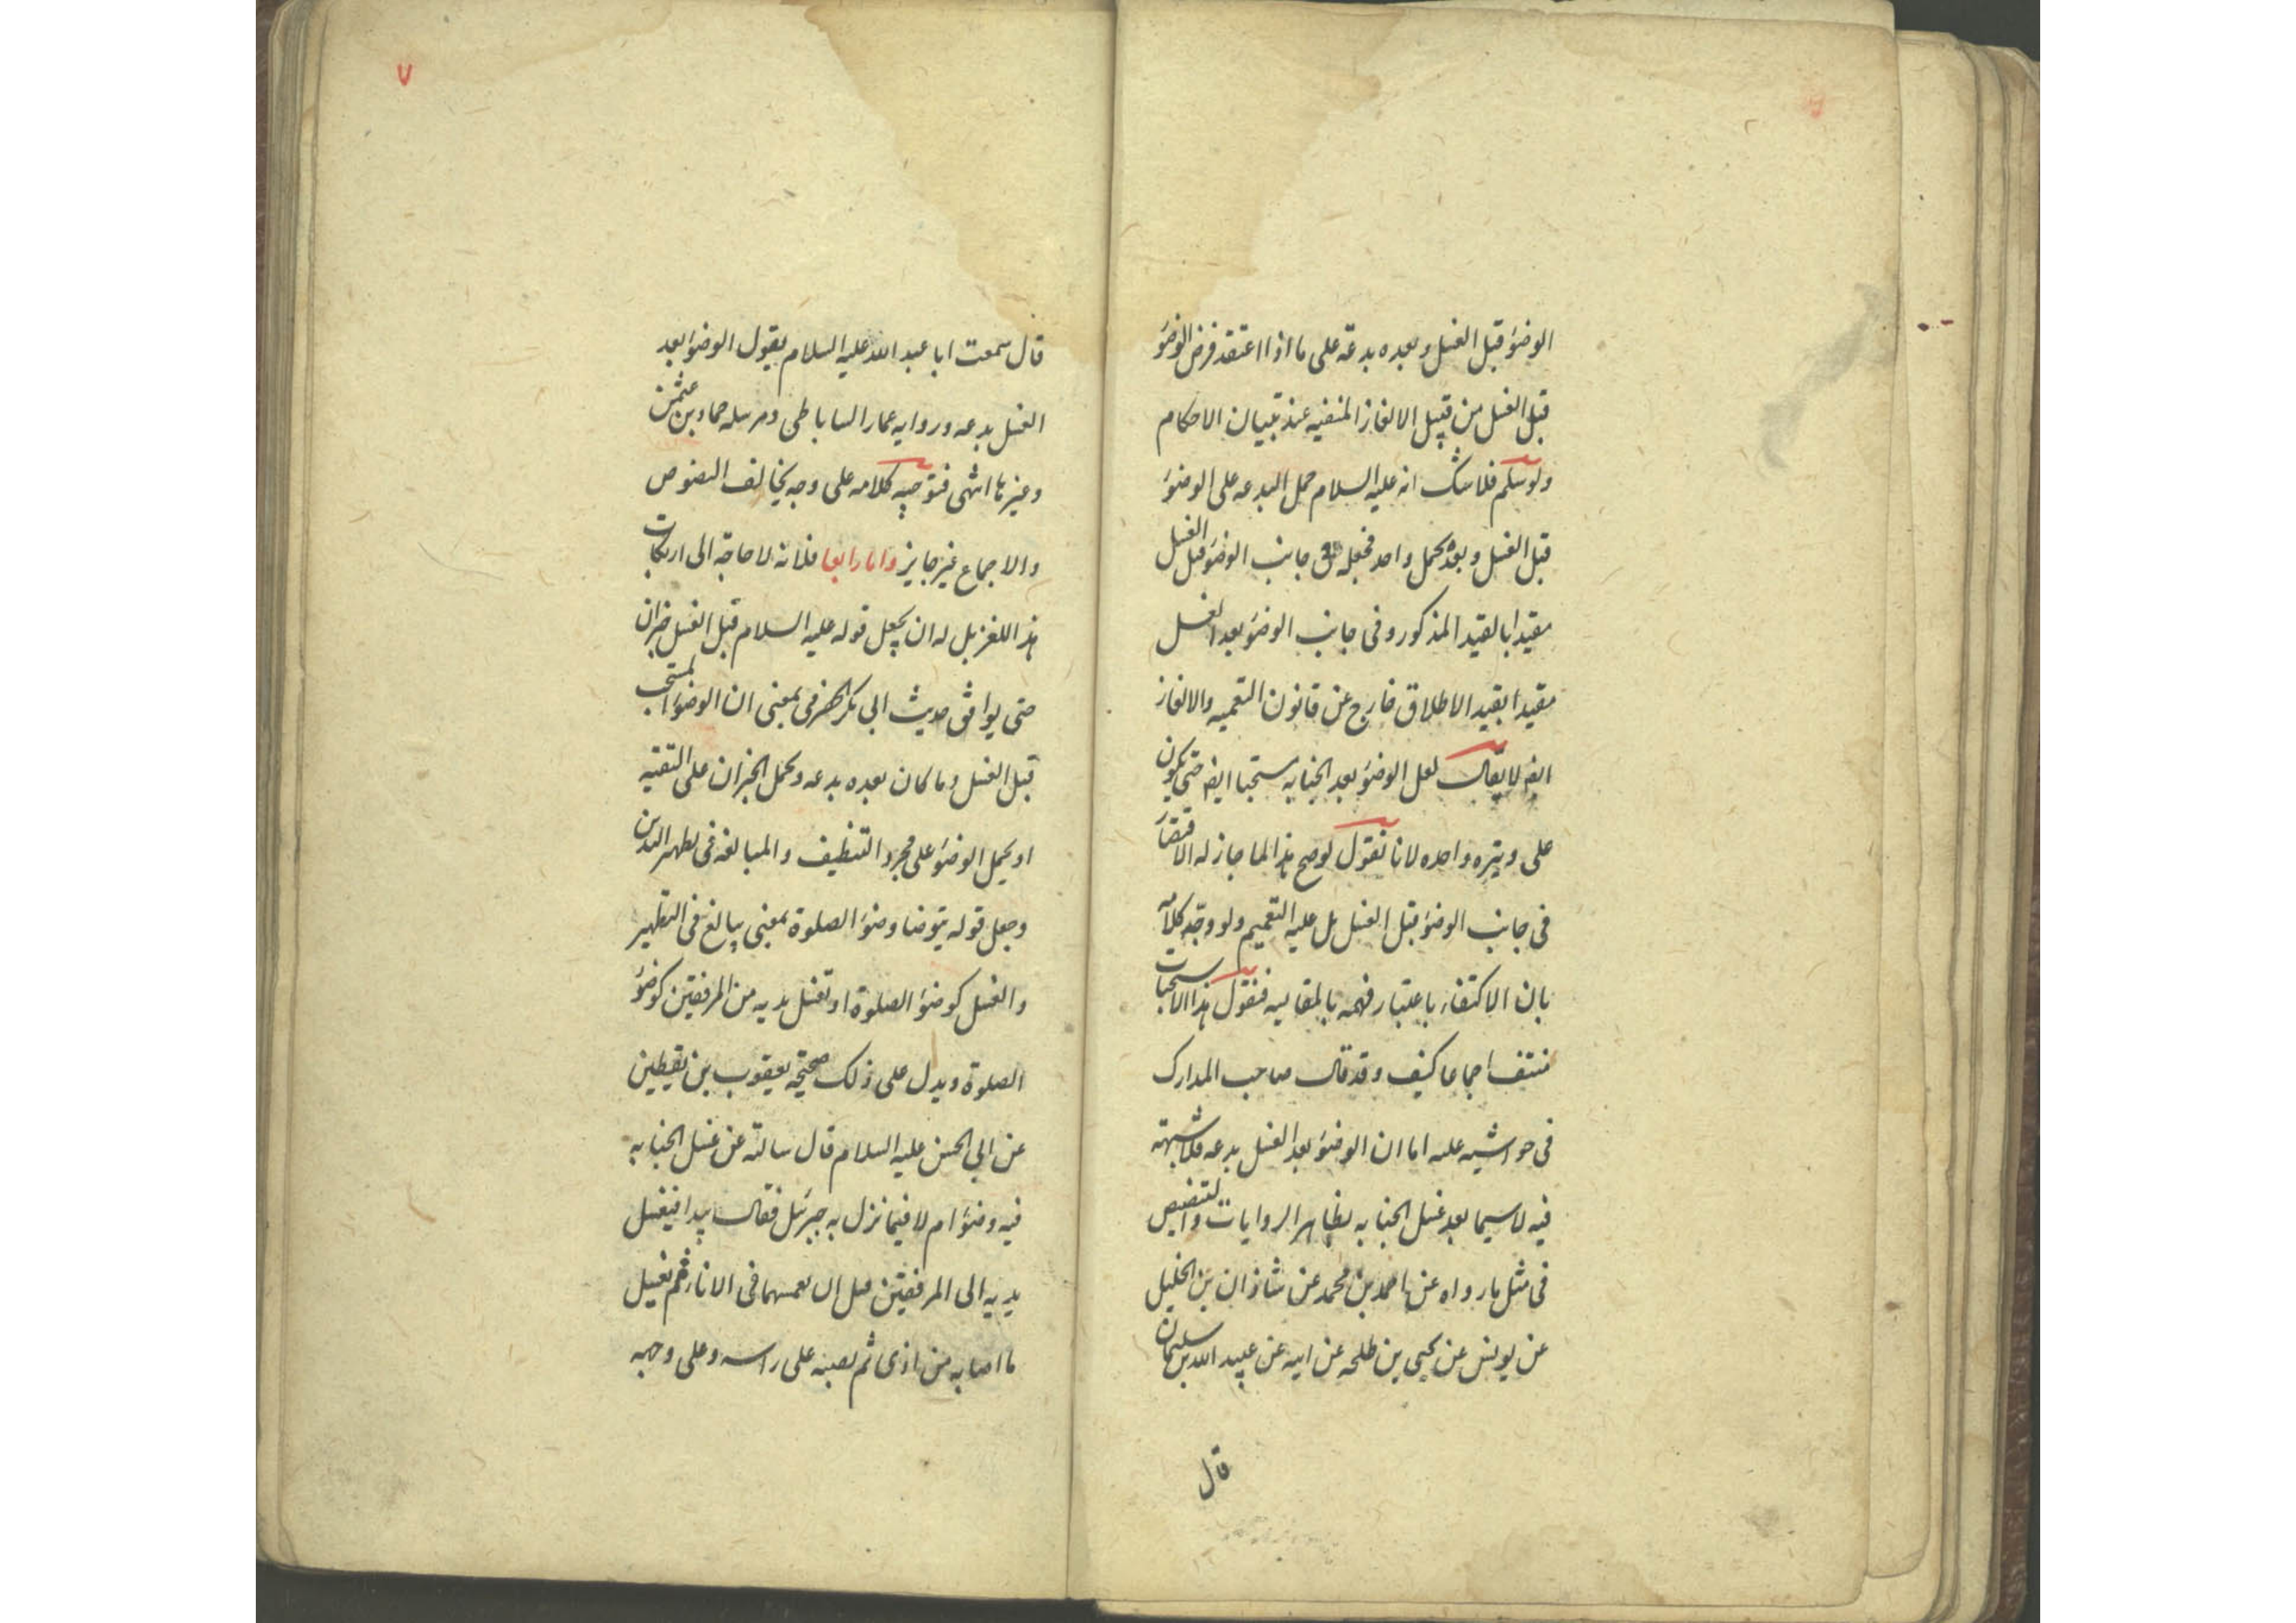 الوضوء قبل الغسل وبعده بدعة على ما اذا اعتقد فرض الوضوء
قبل الغسل من قبيل الالغاز المنفيه عند تبيان الاحكام
ولو سلم فلا شك انه عليه السلام حمل البدعه على الوضوء
قبل الغسل وبعده بحمل واحد فجعله في جانب الوضوء قبل الغسل
مقيدا بالقيد المذكور وفى جانب الوضوء بعد الغسل
مقيدا بقيد الاطلاق خارج عن قانون التعميه والالغاز
ايضا لا يقال لعل الوضوء بعد الجنابه مستحبا ايضا حتى يكون
على وتيره واحده لانا نقول لو صح هذا لما جاز له الاقتصار
فى جانب الوضوء قبل الغسل بل عليه التعميم ولو وجه كلامه
بان الاكتفاء باعتبار فهمه بالمقايسه فنقول هذا الاستحباب
منتف اجماعا كيف وقد قال صاحب المدارك
فى حواشيه عليه اما ان الوضوء بعد الغسل بدعه فلا شبهة
فيه لا سيما بعد غسل الجنابه لظاهر الروايات والتنصيص
فى مثل ما رواه عن احمد بن محمد عن شاذان بن الخليل
عن يونس عن يحيى بن طلحه عن ابيه عن عبد الله بن سليمان
قال
٧
قال سمعت ابا عبد الله عليه السلام يقول الوضوء بعد
الغسل بدعه وروايه عمار الساباطى ومرسله حماد بن عثمن
وغيرها انتهى فتوجيه كلامه على وجه يخالف النصوص
والاجماع غير جايز واما رابعا فلانه لا حاجة الى ارتكاب
هذا اللغز بل له ان يجعل قوله عليه السلام قبل الغسل خبر ان
حتى يوافق حديث ابى بكر الحضرمى بمعنى ان الوضوء المستحب
قبل الغسل وما كان بعده بدعه ويحمل الخبران على التقيه
او يحمل الوضوء على مجرد التنظيف والمبالغه فى تطهير البدن
وجعل قوله يتوضا وضوء الصلوة بمعنى يبالغ فى التطهير
والغسل كوضوء الصلوة او تغسل يديه من المرفقين كوضوء
الصلوة ويدل على ذلك صحيحة يعقوب بن يقطين
عن ابى الحسن عليه السلام قال سالته عن غسل الجنابه
فيه وضوء ام لا فيما نزل به جبرئيل فقال يبدا فيغسل
يديه الى المرفقين قبل ان يغمسهما فى الاناء ثم يغسل
ما اصابه من اذى ثم يصبه على راسه وعلى وجهه